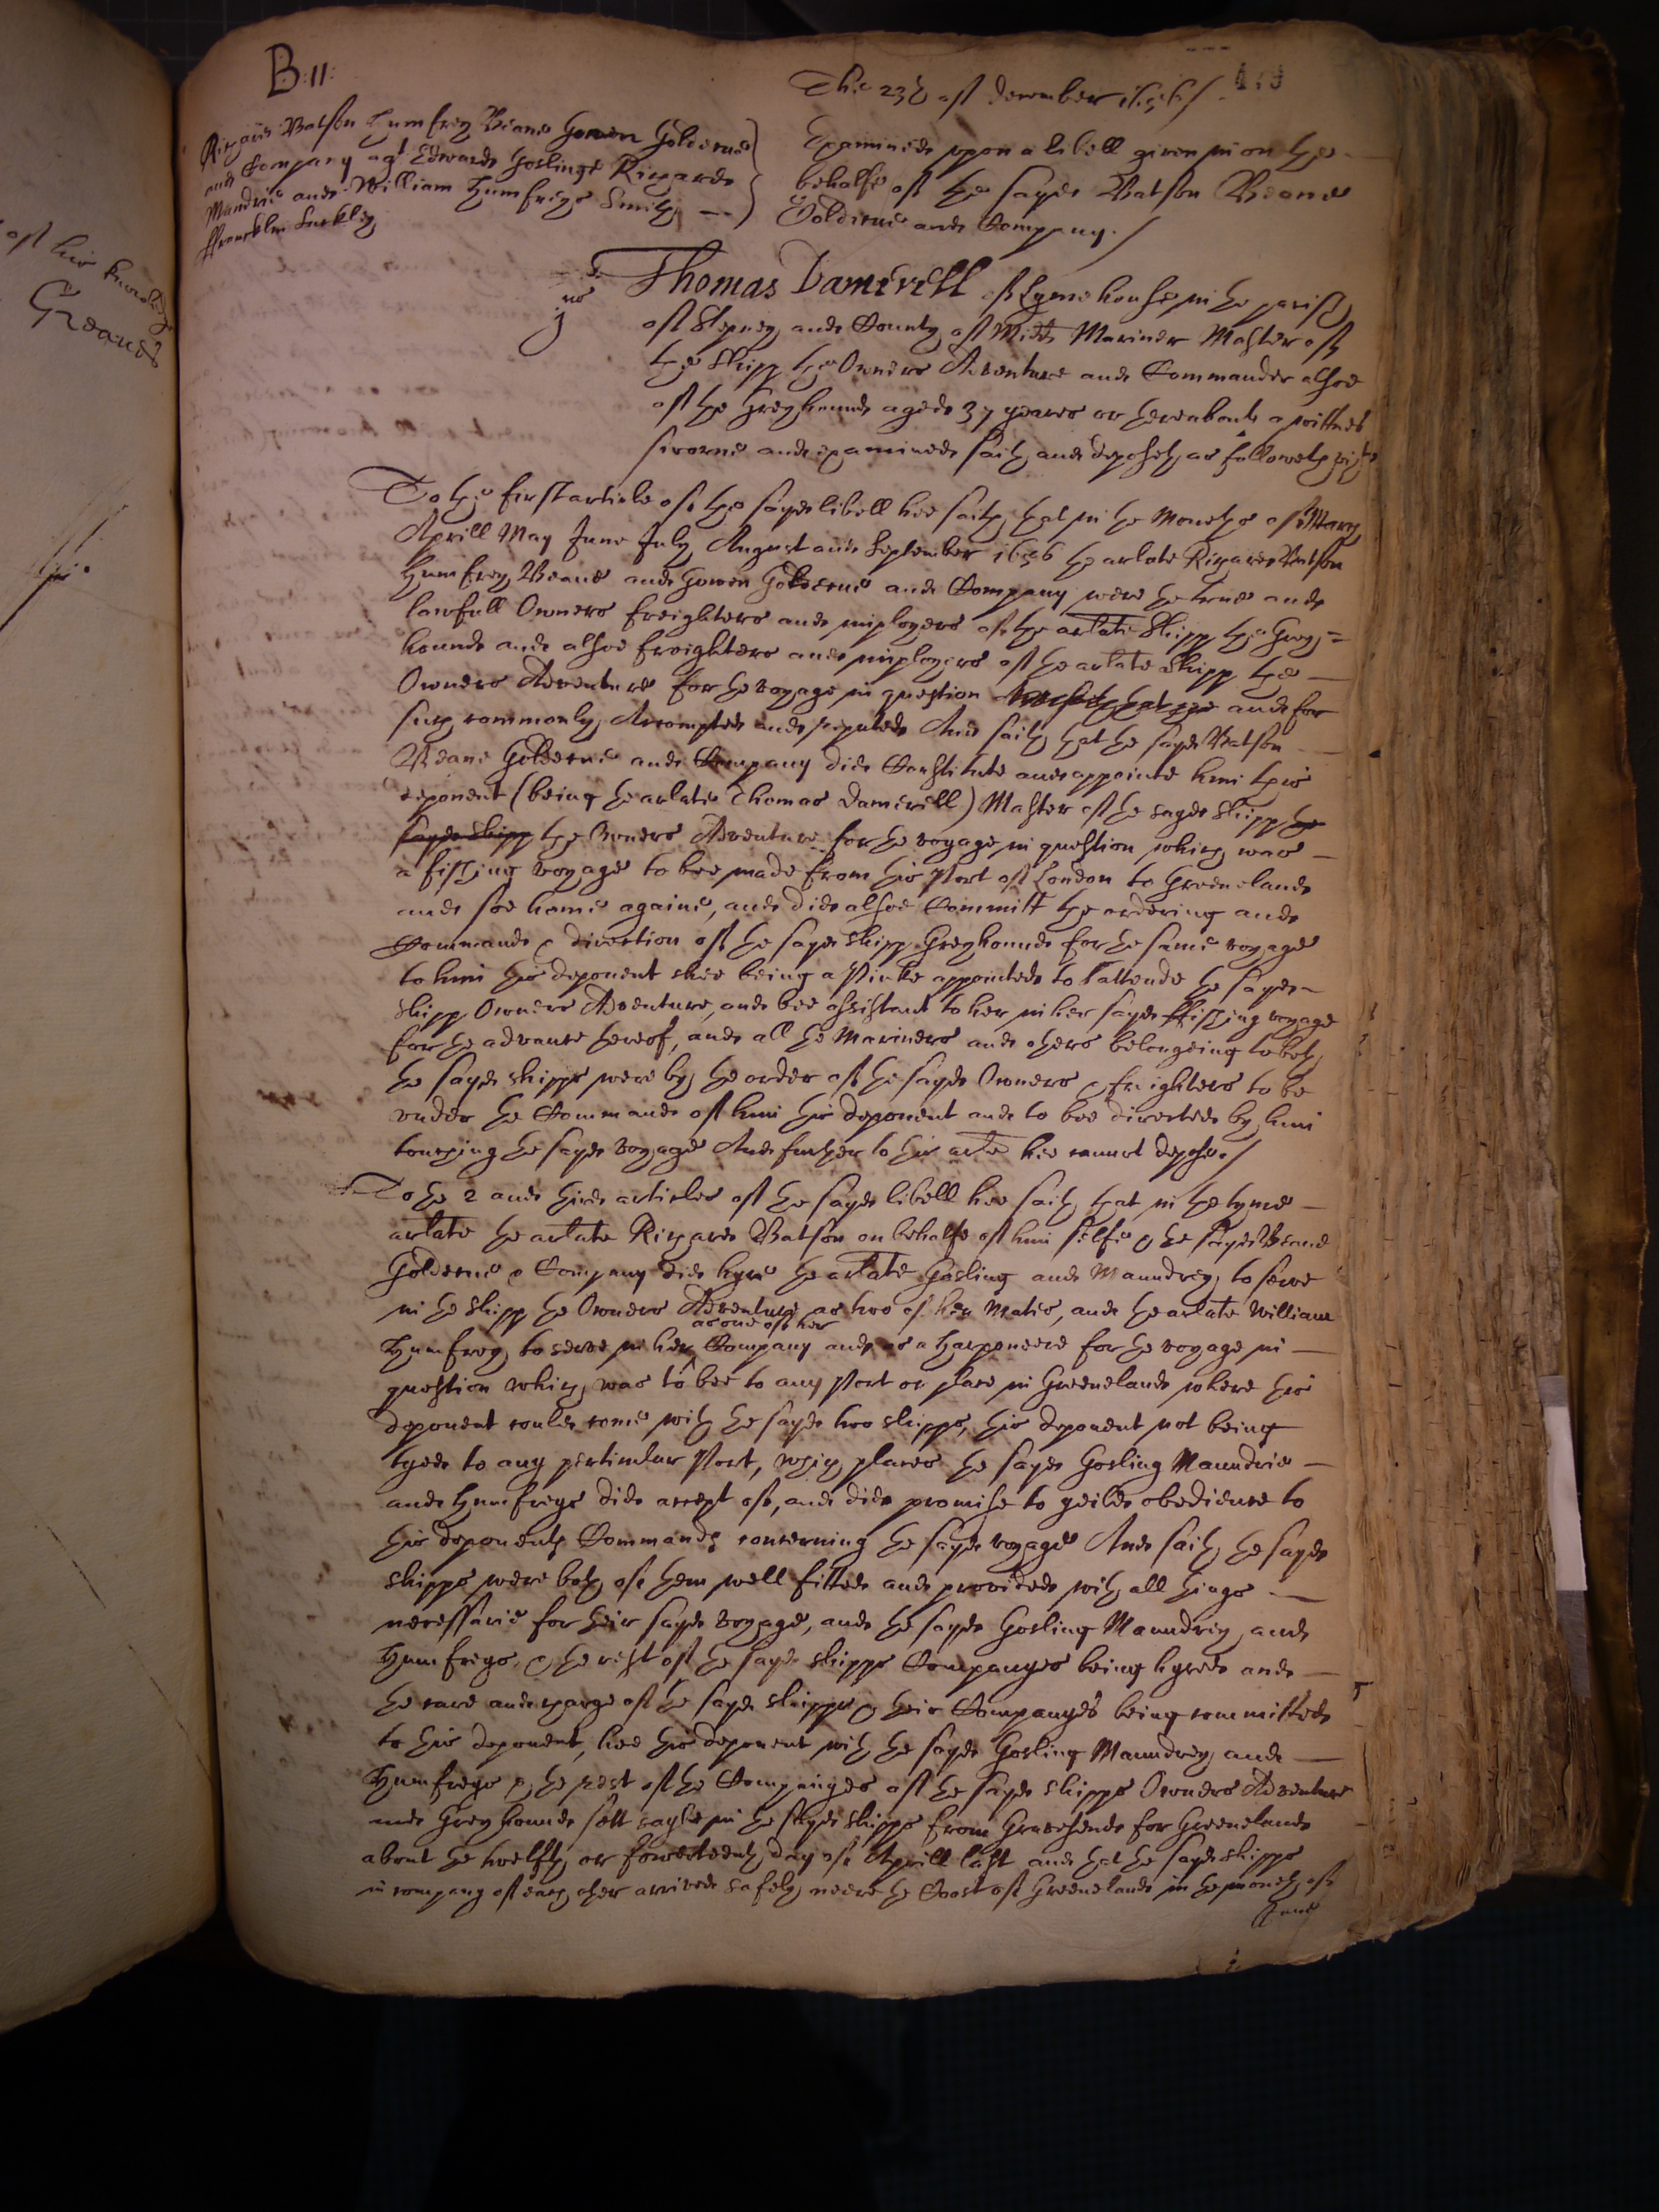 B: 11:
The 23th of december 1656 /
Richard Batson Humfrey Beane Gowen Golderne
and Company agt Edwarde Goslinge Richarde
Mandrie and William Humfreys Smith
ffrancklin Suckley
Examined upon a libell given in on the
behalfe of the sayde Batson Beane
Golderne and Company. /
Thomas Damerell of Lymehouse in the parish
of Stepney and County of Midds Mariner Master of
the shipp the Owners Adventure and Commander alsoe
of the Greyhound aged 37 yeares or thereabouts a wittnes
sworne and examined saith and deposeth as followeth vizt
To the first article of the sayde libell hee saith that in the moneths of March
Aprill May June July August and September 1656 the arlate Richard Batson
Humfrey Beane and Gowen Golderne and Company were the true and
lawfull Owners freighters and imployers of the arlate shipp the Grey=
hound and alsoe freighters and imployers of the arlate shipp the
Owners Adventure for the voyage in question hee saith that the and for
such commonly Accompted and reputed And saith that the sayde Batson
Beane Golderne and Company did Constitute and appointe him this
deponent (being the arlate Thomas Damerell) Master of the sayde shipp the
sayde shipp the Owners Adventure for the voyage in question which was
a fishing voyage to bee made from this Port of London to Greenelande
and soe home againe, and did alsoe Committ the ordering and
Commande & direction of the sayde shipp Greyhounde for the same voyage
to him this deponent shee being a Pinke appointed to attende the sayde
shipp Owners Adventure, and bee assistant to her in her sayde ffishing voyage
for the advance thereof, and all the Mariners and others belongeing to both
the sayde shipps were by the order of the sayde Owners & freighters to be
under the Commande of him this deponent and to bee directed by him
touching the sayde voyage And further to this arle hee cannot depose. /
To the 2 and third articles of the sayde libell hee saith that in the tyme
arlate the arlate Richard Batson on behalfe of him selfe & the sayde Beane
Golderne & Company did hyre the arlate Gosling and Maundrey to serve
in the shipp the Owners Adventure as two of her Mates, and the arlate William
as one of her
Humfrey to serve in her Company and as a harponeere for the voyage in
question which was to bee to any Port or place in Greenelande where this
deponent could come with the sayde two shipps, this deponent not being
tyed to any perticular Port, which places the sayde Gosling Maundrie
and Humfreys did accept of, and did promise to yeilde obedience to
this deponents Commands concerning the sayde voyage And saith the sayde
shipps were both of them well fitted and provided with all things
necessarie for their sayde voyage, and the sayde Gosling Maundrey and
Humfreys & the rest of the sayde shipps Companyes being hyred and
the care and charge of the sayde shipps & their Companyes being committed
to this deponent, hee this deponent with the sayde Gosling Maundrey and
Humfreys & the rest of the Companyes of the sayde shipps Owners Adventure
and Greyhounde sett sayle in the sayde shipps from Gravesende for Greenelande
about the twelfth or fowerteenth day of Aprill last and that the sayde shipps
in company of each other arrived safely neere the Coast of Greenelande in the moneth of
June